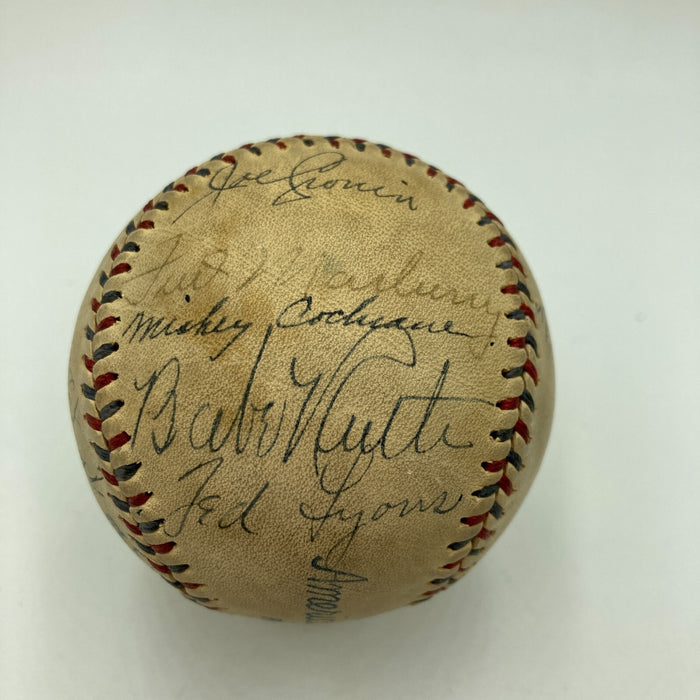 Joe Cronin
Fred Marberry
Mickey Cochrane
Babe Ruth
Ted Lyons
Amer